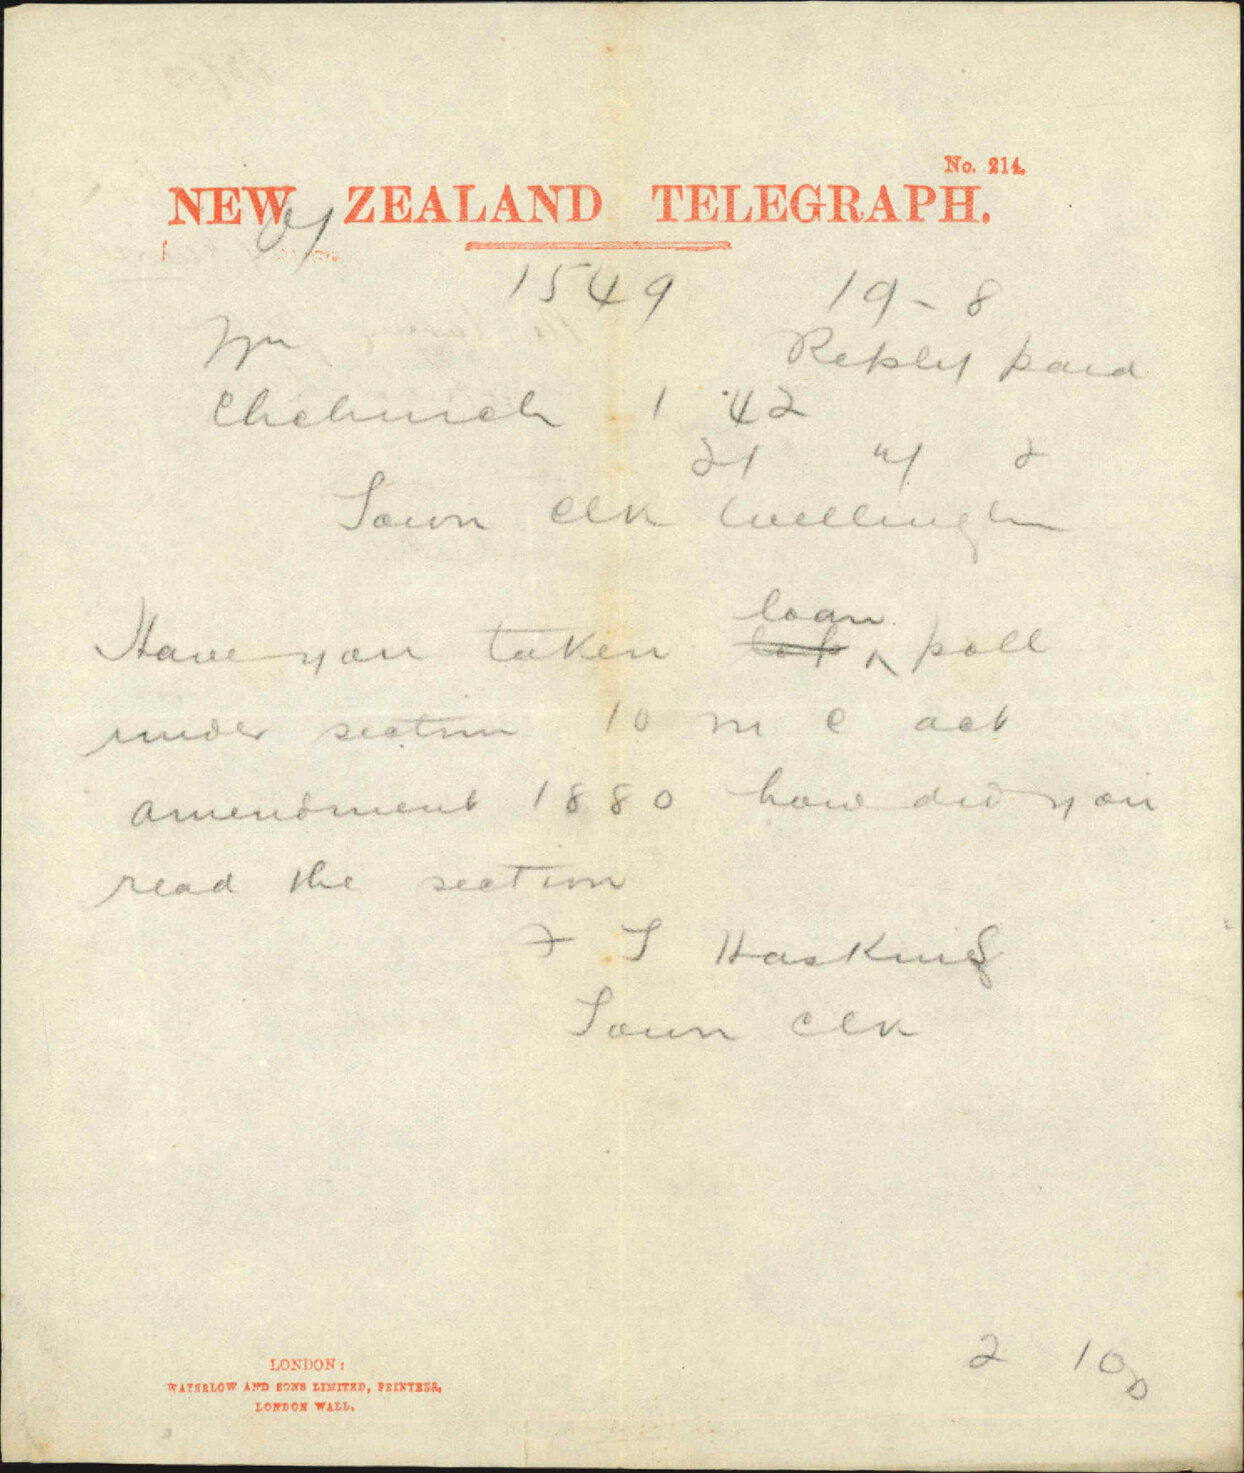 No. 214.
NEW ZEALAND TELEGRAPH.
1549 19-8
Wn Reply paid
Chchurch 1 42
21 2
Town Clk Wellington
loan
Have you taken poll
under section 10 m c act
amendment 1880 how did you
read the section
F T Haskins
Town Clk
2 10
LONDON:
WATERLOW AND SONS LIMITED, PRINTERS,
LONDON WALL.